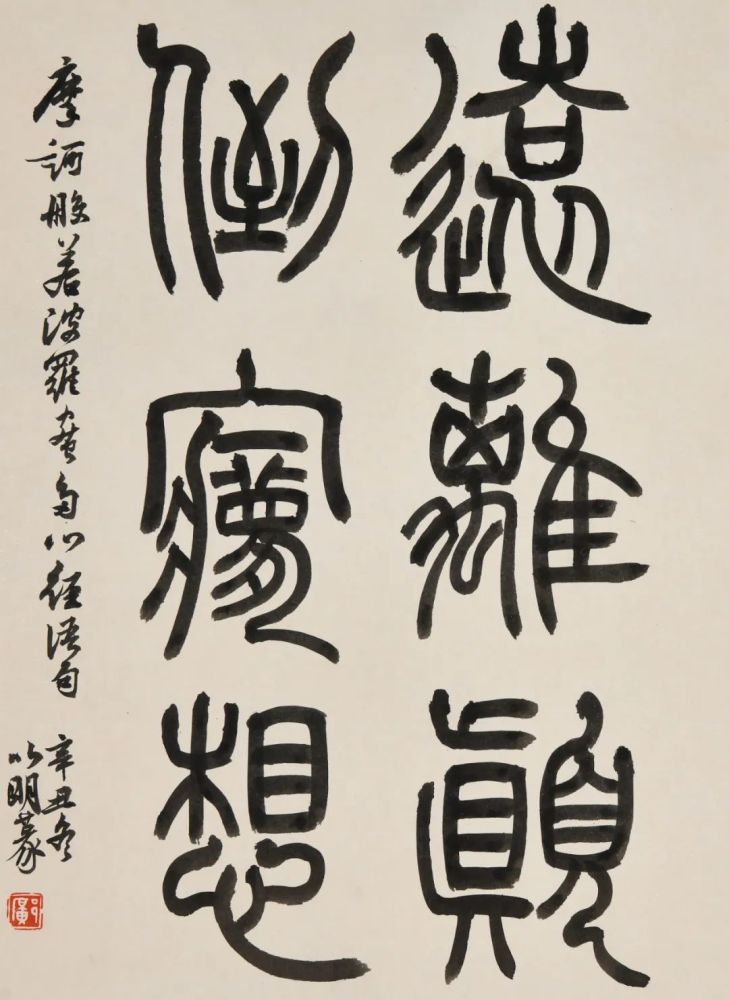 遠離顛
倒夢想
摩訶般若波羅蜜多心經語句
辛丑冬
以明篆